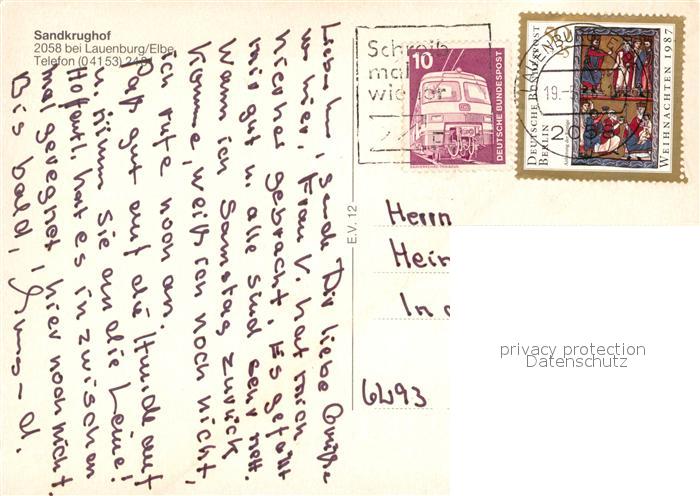 Sandkrughof
2058 bei Lauenburg/Elbe
Telefon (0 41 53) 24
Lieber ich sende Dir liebe Grüße
von hier. Frau V. hat mich
hierher gebracht. Es gefällt
mir gut u. alle sind sehr nett.
Wann ich Samstag zurück
komme, weiß ich noch nicht,
ich rufe noch an.
Paß gut auf die Hunde auf
u. nimm sie an die Leine!
Hoffentl. hat es inzwischen
mal geregnet, hier noch nicht.
Bis bald,
E.V. 12
Schreib
mal
wieder
10
DEUTSCHE BUNDESPOST
DEUTSCHE BUNDESPOST
BERLIN
WEIHNACHTEN 1987
19.
2058
Herrn
Hein
In d
6493
privacy protection
Datenschutz